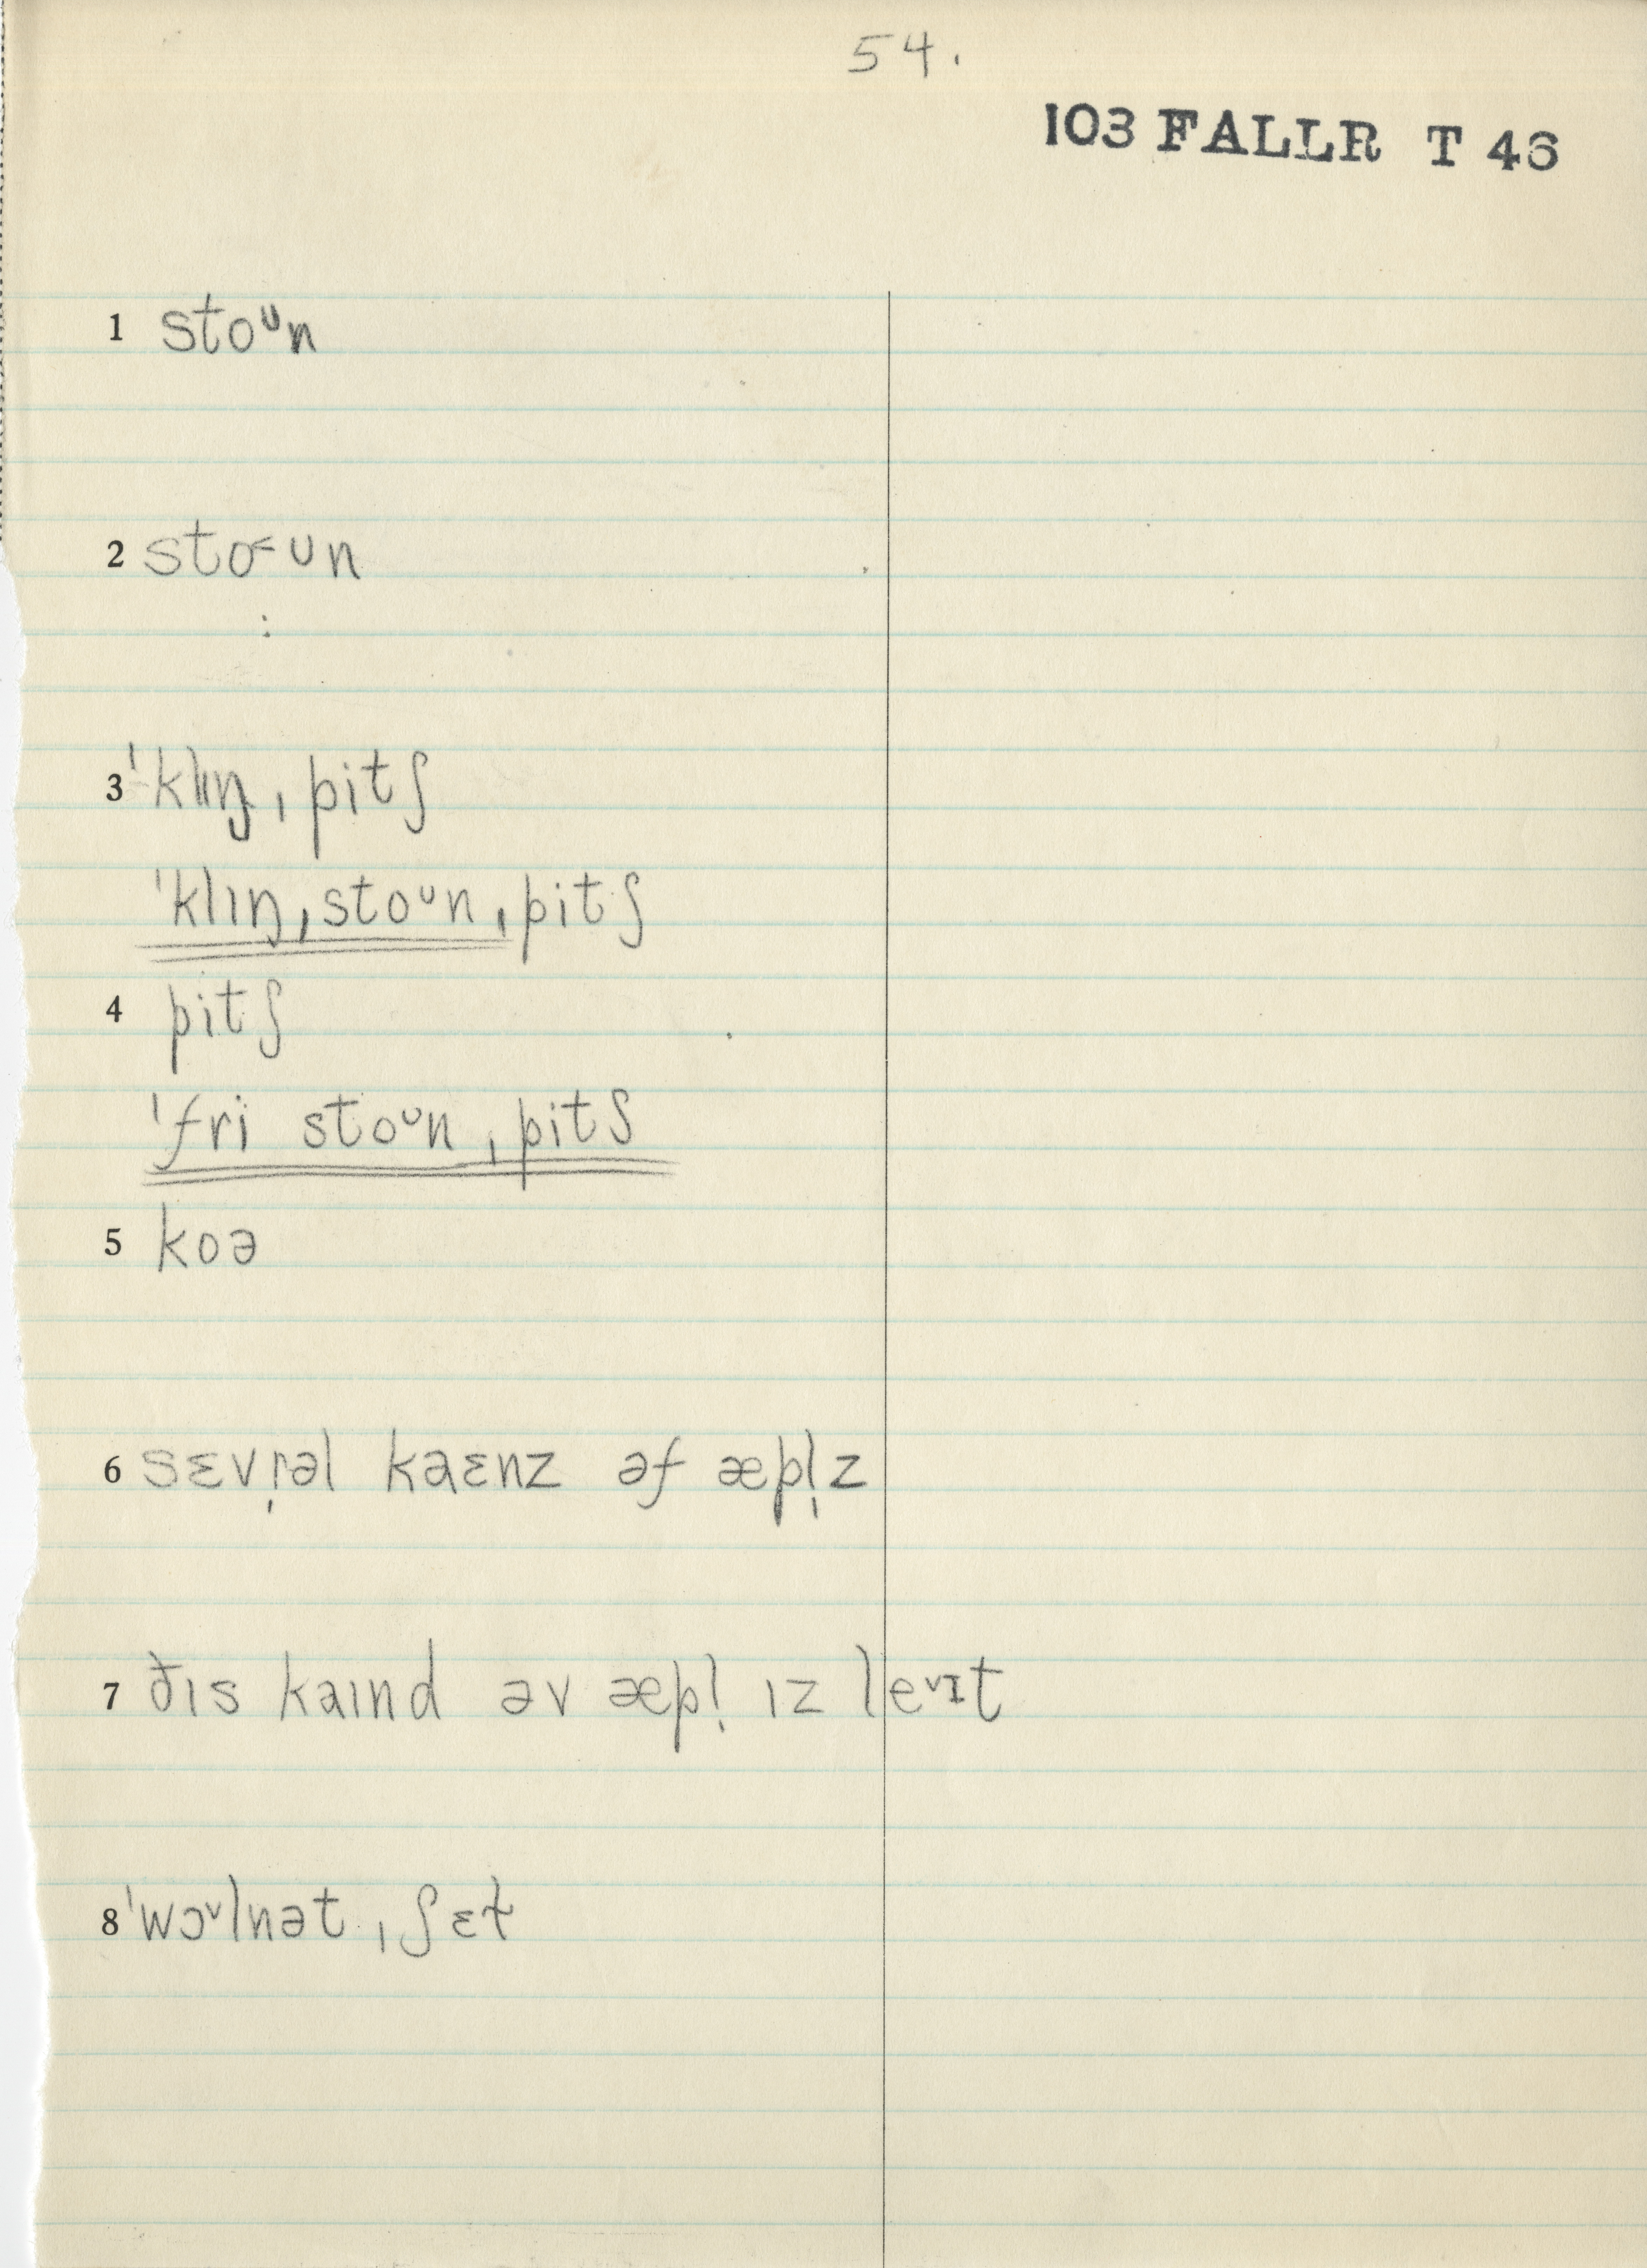 54.
103 FALLR T 46
1 stoᶷn
2 sto˂ʊn
:
3 ˈklɪŋˌpitʃ
ˈklɪŋˌstoᶷnˌpitʃ
4 pitʃ
ˈfri stoᶷnˌpitʃ
5 koə
6 sɛvr̩əl kaɛnz əf æpl̩z
7 ðɪs kaɪnd əv æpl̩ ɪz le˅ɪt
8 ˈwɔ˅lnətˌʃɛt